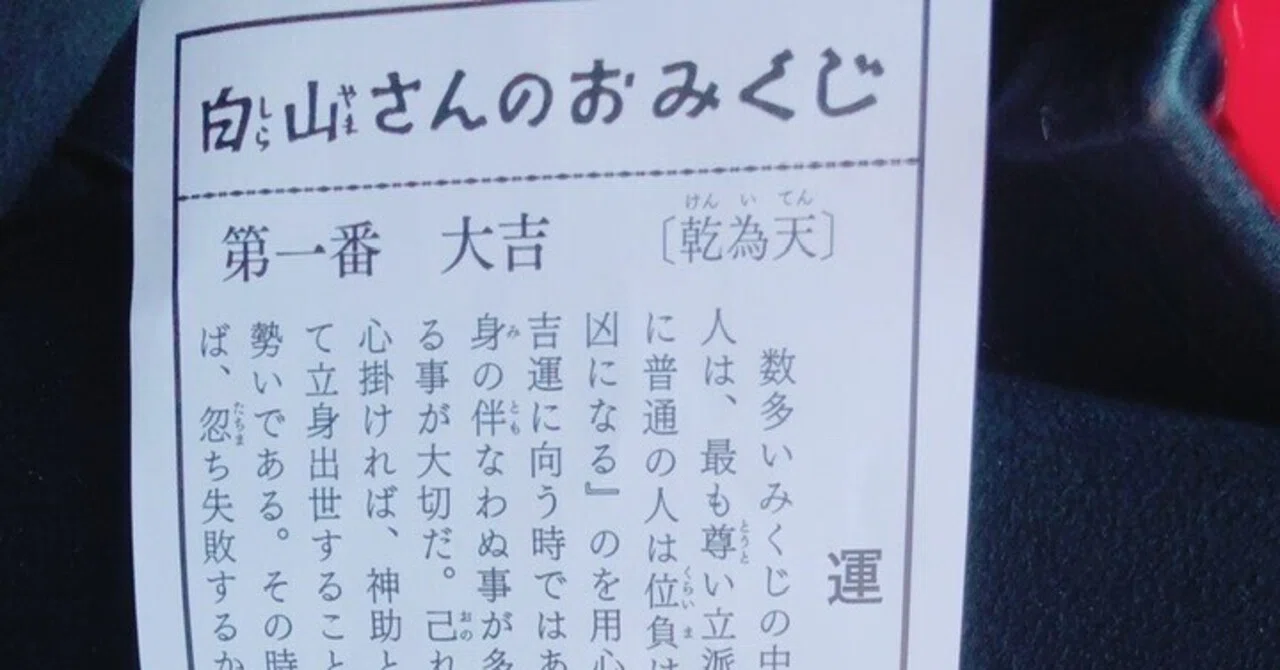 白山さんのおみくじ
しら
やま
第一番　大吉　〔乾為天〕
けんいてん
運
数多いみくじの中
人は、最も尊い立派
とうと
に普通の人は位負け
くらいま
凶になる』のを用心
吉運に向う時ではあ
身の伴なわぬ事が多
み
とも
る事が大切だ。己れ
おの
心掛ければ、神助と
て立身出世すること
勢いである。その時
ば、忽ち失敗するか
たちま